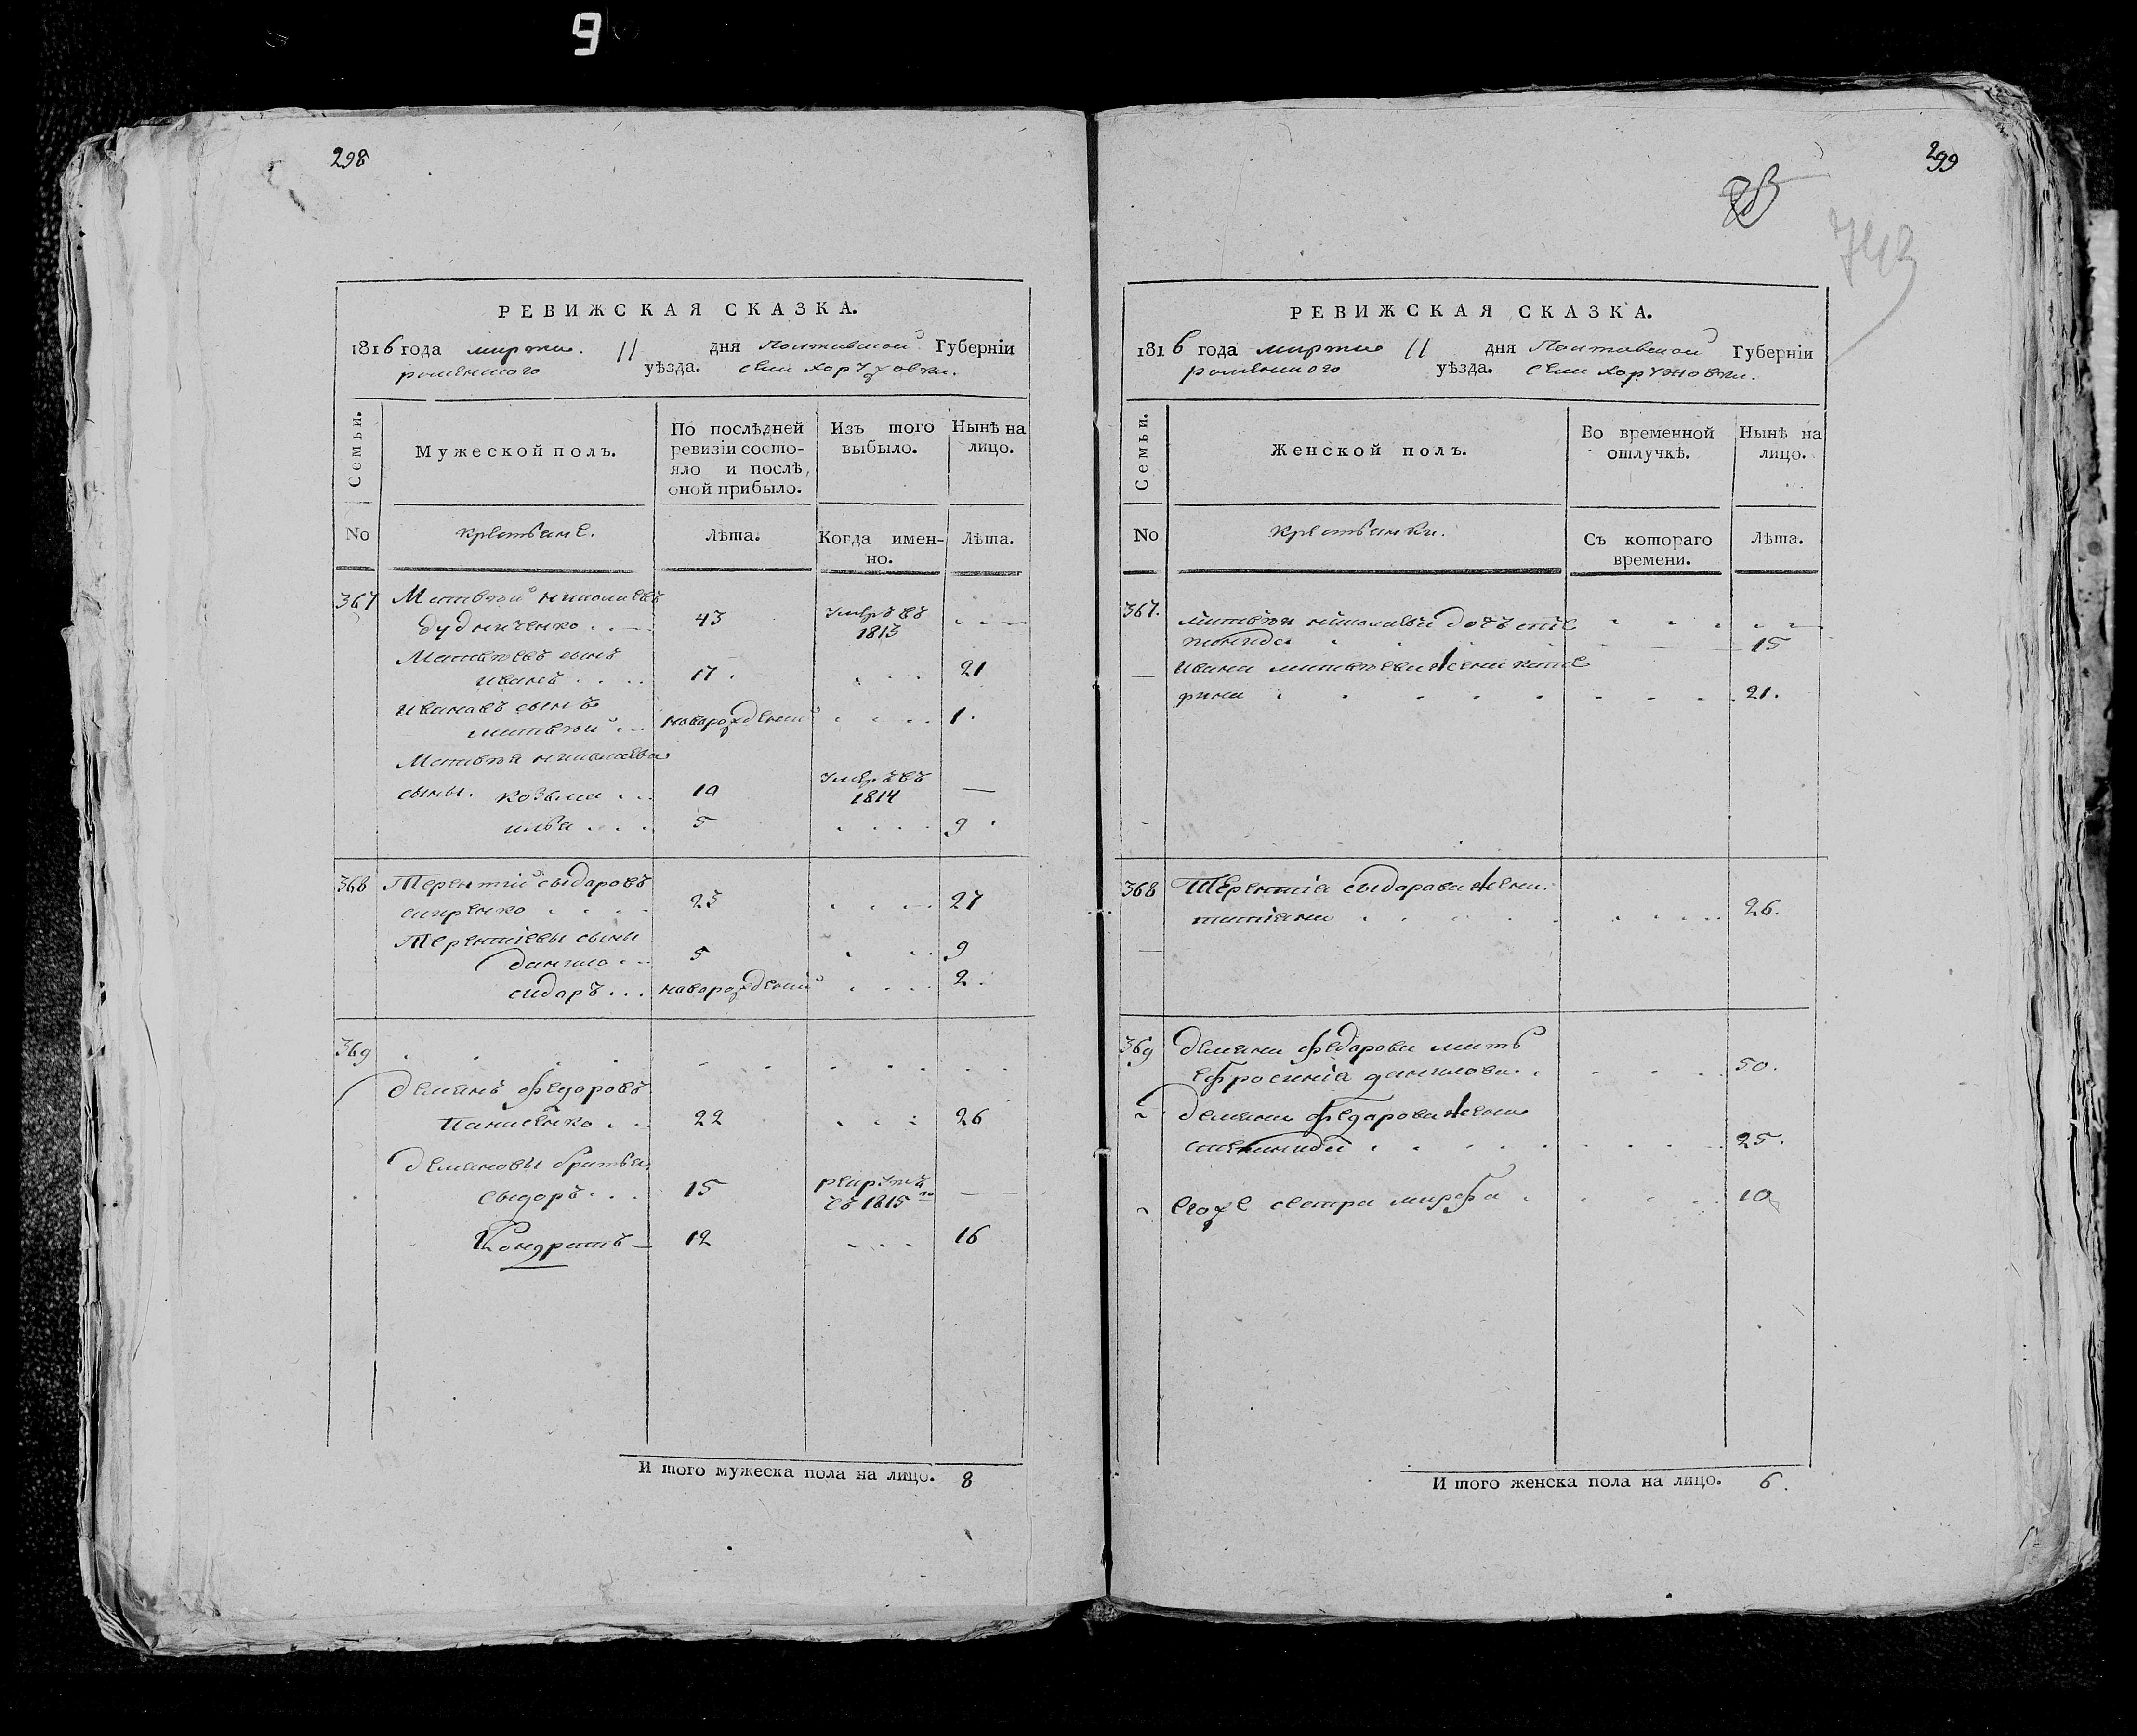 9
298
РЕВИЖСКАЯ СКАЗКА.
1816 года марта. 11 дня Полтавской Губерніи
роменного уѣзда. села хоружовки.
Семьи.
Мужеской полъ.
По послѣдней
ревизіи состо-
яло и послѣ
оной прибыло.
Изъ того
выбыло.
Нынѣ на
лицо.
No
крестьяне.
Лѣта.
Когда имен-
но.
Лѣта.
367 Матвѣй николаевъ
дудниченко . . — 43 умеръ въ 1813 . . —
Матвѣевъ сынъ
иванъ . . . . 17 . . . . 21
ивановъ сынъ
матвѣй . . новарожденый . . . . 1.
Матвѣя николаева
сыны. козьма . . . 10 умеръ въ 1814 —
илья . . . . 5 . . . . 9
368 Терентій сыдаровъ
. . . . 23 . . . — 27
Терентіевы сыны
данило . — 5 . . . 9
сидоръ . . . новарожденый . . . . 2.
369 . . . . . . . . . . .
демянъ федоровъ
Панасенко . . 22 . . : 26
демяновы братья
сыдоръ . . . 15 рекрутъ въ 1815го — —
Кондратъ — 12 . . . 16
И того мужеска пола на лицо. 8
299
743
РЕВИЖСКАЯ СКАЗКА.
1816 года марта 11 дня Полтавской Губерніи
роменного уѣзда. села хоружовки.
Семьи.
Женской полъ.
Во временной
отлучкѣ.
Нынѣ на
лицо.
No
крестьянки.
Съ котораго
времени.
Лѣта.
367. матвѣя николаева дочъ степанида . . . . 15
— ивана матвѣева жена кате
рина . . . . . . . . . 21.
368 Терентія сыдарава жена
татіяна . . . . . . . . . 26.
369 демяна федарова мать
ефросинія данилова . . . . 50.
демяна федарова жена
степанида . . . . . . . . 25.
его же сестра марфа . . . . 10
И того женска пола на лицо. 6.